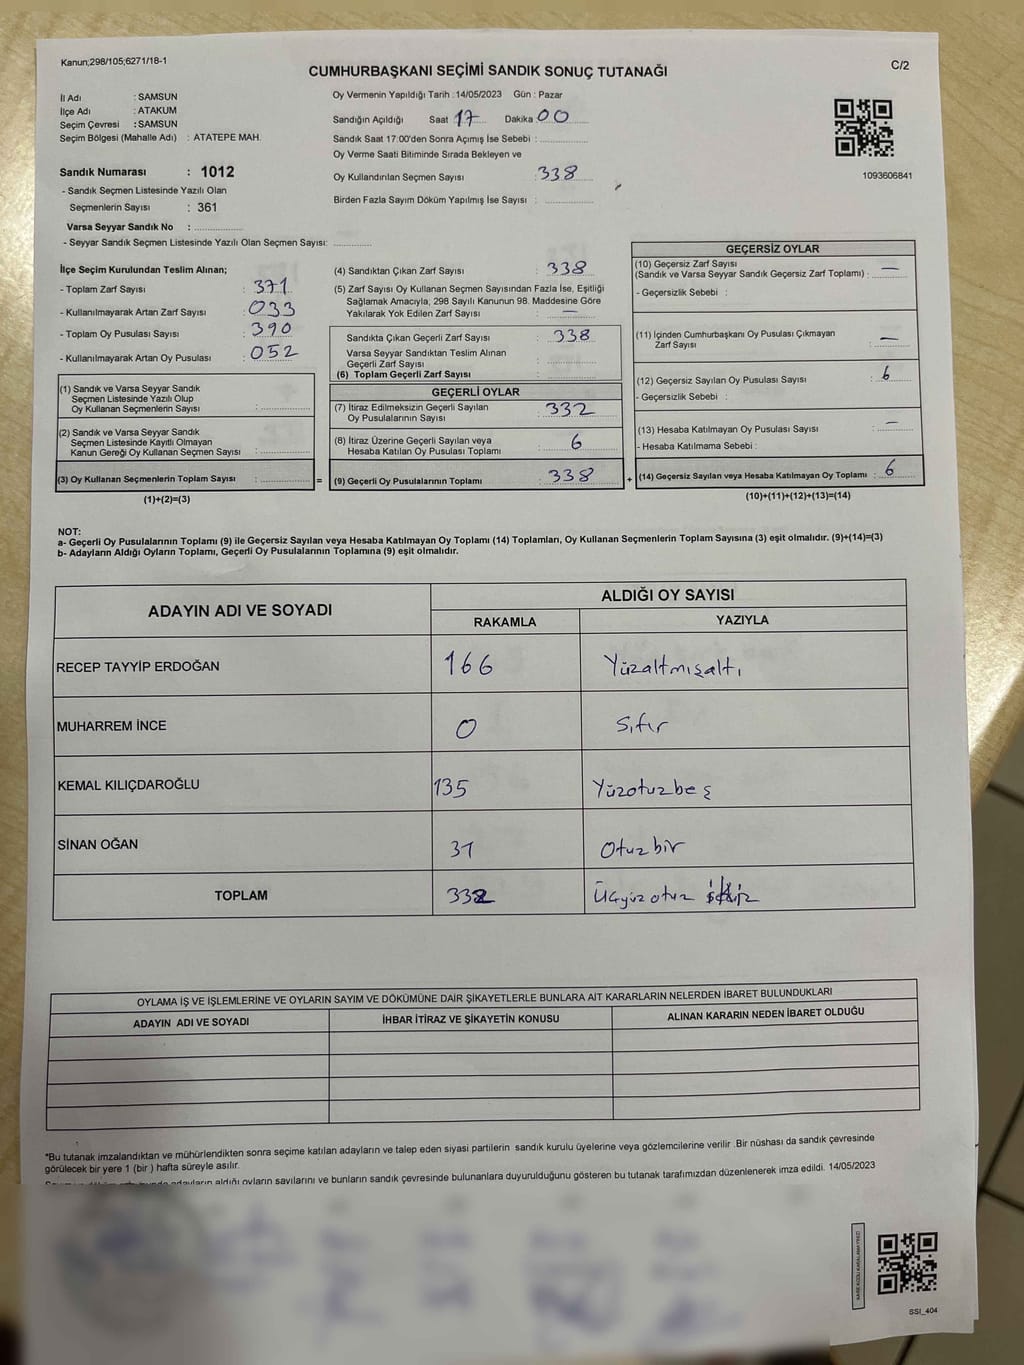 Kanun;298/105;6271/18-1
C/2
CUMHURBAŞKANI SEÇİMİ SANDIK SONUÇ TUTANAĞI
İl Adı : SAMSUN
İlçe Adı : ATAKUM
Seçim Çevresi : SAMSUN
Seçim Bölgesi (Mahalle Adı) : ATATEPE MAH.
Sandık Numarası : 1012
- Sandık Seçmen Listesinde Yazılı Olan
Seçmenlerin Sayısı : 361
Varsa Seyyar Sandık No :
- Seyyar Sandık Seçmen Listesinde Yazılı Olan Seçmen Sayısı:
Oy Vermenin Yapıldığı Tarih :14/05/2023 Gün : Pazar
Sandığın Açıldığı Saat 17 Dakika 00
Sandık Saat 17:00'den Sonra Açımış İse Sebebi :
Oy Verme Saati Bitiminde Sırada Bekleyen ve
Oy Kullandırılan Seçmen Sayısı : 338
Birden Fazla Sayım Döküm Yapılmış İse Sayısı :
1093606841
İlçe Seçim Kurulundan Teslim Alınan;
- Toplam Zarf Sayısı : 371
- Kullanılmayarak Artan Zarf Sayısı : 033
- Toplam Oy Pusulası Sayısı : 390
- Kullanılmayarak Artan Oy Pusulası : 052
(1) Sandık ve Varsa Seyyar Sandık
Seçmen Listesinde Yazılı Olup
Oy Kullanan Seçmenlerin Sayısı :
(2) Sandık ve Varsa Seyyar Sandık
Seçmen Listesinde Kayıtlı Olmayan
Kanun Gereği Oy Kullanan Seçmen Sayısı :
(3) Oy Kullanan Seçmenlerin Toplam Sayısı : =
(1)+(2)=(3)
(4) Sandıktan Çıkan Zarf Sayısı : 338
(5) Zarf Sayısı Oy Kullanan Seçmen Sayısından Fazla İse, Eşitliği
Sağlamak Amacıyla; 298 Sayılı Kanunun 98. Maddesine Göre
Yakılarak Yok Edilen Zarf Sayısı : —
Sandıkta Çıkan Geçerli Zarf Sayısı : 338
Varsa Seyyar Sandıktan Teslim Alınan
Geçerli Zarf Sayısı :
(6) Toplam Geçerli Zarf Sayısı :
GEÇERLİ OYLAR
(7) İtiraz Edilmeksizin Geçerli Sayılan
Oy Pusulalarının Sayısı : 332
(8) İtiraz Üzerine Geçerli Sayılan veya
Hesaba Katılan Oy Pusulası Toplamı : 6
(9) Geçerli Oy Pusulalarının Toplamı : 338 +
GEÇERSİZ OYLAR
(10) Geçersiz Zarf Sayısı
(Sandık ve Varsa Seyyar Sandık Geçersiz Zarf Toplamı) : —
- Geçersizlik Sebebi :
(11) İçinden Cumhurbaşkanı Oy Pusulası Çıkmayan
Zarf Sayısı : —
(12) Geçersiz Sayılan Oy Pusulası Sayısı : 6
- Geçersizlik Sebebi :
(13) Hesaba Katılmayan Oy Pusulası Sayısı : —
- Hesaba Katılmama Sebebi :
(14) Geçersiz Sayılan veya Hesaba Katılmayan Oy Toplamı : 6
(10)+(11)+(12)+(13)=(14)
NOT:
a- Geçerli Oy Pusulalarının Toplamı (9) ile Geçersiz Sayılan veya Hesaba Katılmayan Oy Toplamı (14) Toplamları, Oy Kullanan Seçmenlerin Toplam Sayısına (3) eşit olmalıdır. (9)+(14)=(3)
b- Adayların Aldığı Oyların Toplamı, Geçerli Oy Pusulalarının Toplamına (9) eşit olmalıdır.
ADAYIN ADI VE SOYADI
ALDIĞI OY SAYISI
RAKAMLA YAZIYLA
RECEP TAYYİP ERDOĞAN 166 Yüzaltmışaltı
MUHARREM İNCE 0 Sıfır
KEMAL KILIÇDAROĞLU 135 Yüzotuzbeş
SİNAN OĞAN 31 Otuzbir
TOPLAM 332 Üçyüzotuz
OYLAMA İŞ VE İŞLEMLERİNE VE OYLARIN SAYIM VE DÖKÜMÜNE DAİR ŞİKAYETLERLE BUNLARA AİT KARARLARIN NELERDEN İBARET BULUNDUKLARI
ADAYIN ADI VE SOYADI İHBAR İTİRAZ VE ŞİKAYETİN KONUSU ALINAN KARARIN NEDEN İBARET OLDUĞU
*Bu tutanak imzalandıktan ve mühürlendikten sonra seçime katılan adayların ve talep eden siyasi partilerin sandık kurulu üyelerine veya gözlemcilerine verilir .Bir nüshası da sandık çevresinde
görülecek bir yere 1 (bir ) hafta süreyle asılır.
adayların aldığı oyların sayılarını ve bunların sandık çevresinde bulunanlara duyurulduğunu gösteren bu tutanak tarafımızdan düzenlenerek imza edildi. 14/05/2023
SSI_404